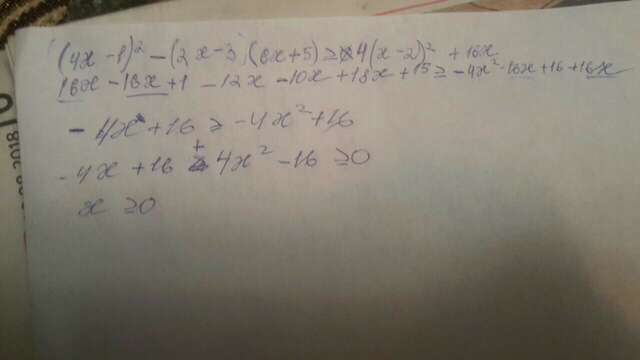 (4x - 1)² - (2x - 3)(6x + 5) ≥ 4(x - 2)² + 16x
16x - 16x + 1 - 12x - 10x + 18x + 15 ≥ - 4x² - 16x + 16 + 16x
- 4x + 16 ≥ - 4x² + 16
- 4x + 16 + 4x² - 16 ≥ 0
x ≥ 0
08.2018